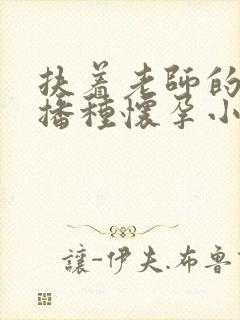 扶着老師的
播種懷孕小
讓-伊夫.布魯